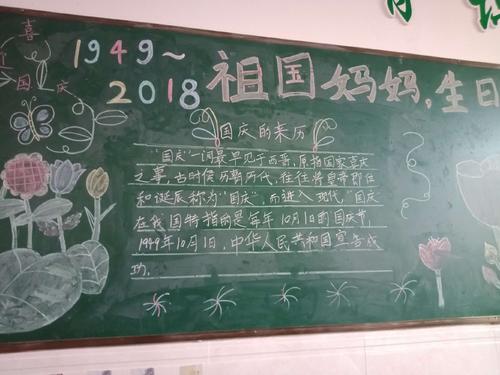 喜
国庆
1949~
2018
祖国妈妈,生日
国庆的来历
"国庆"一词最早见于西晋,原指国家喜庆
之事,古时候历朝历代,往往将皇帝即位
和诞辰称为"国庆",而进入现代,国庆
在我国特指的是每年10月1日的国庆节,
1949年10月1日,中华人民共和国宣告成
功.